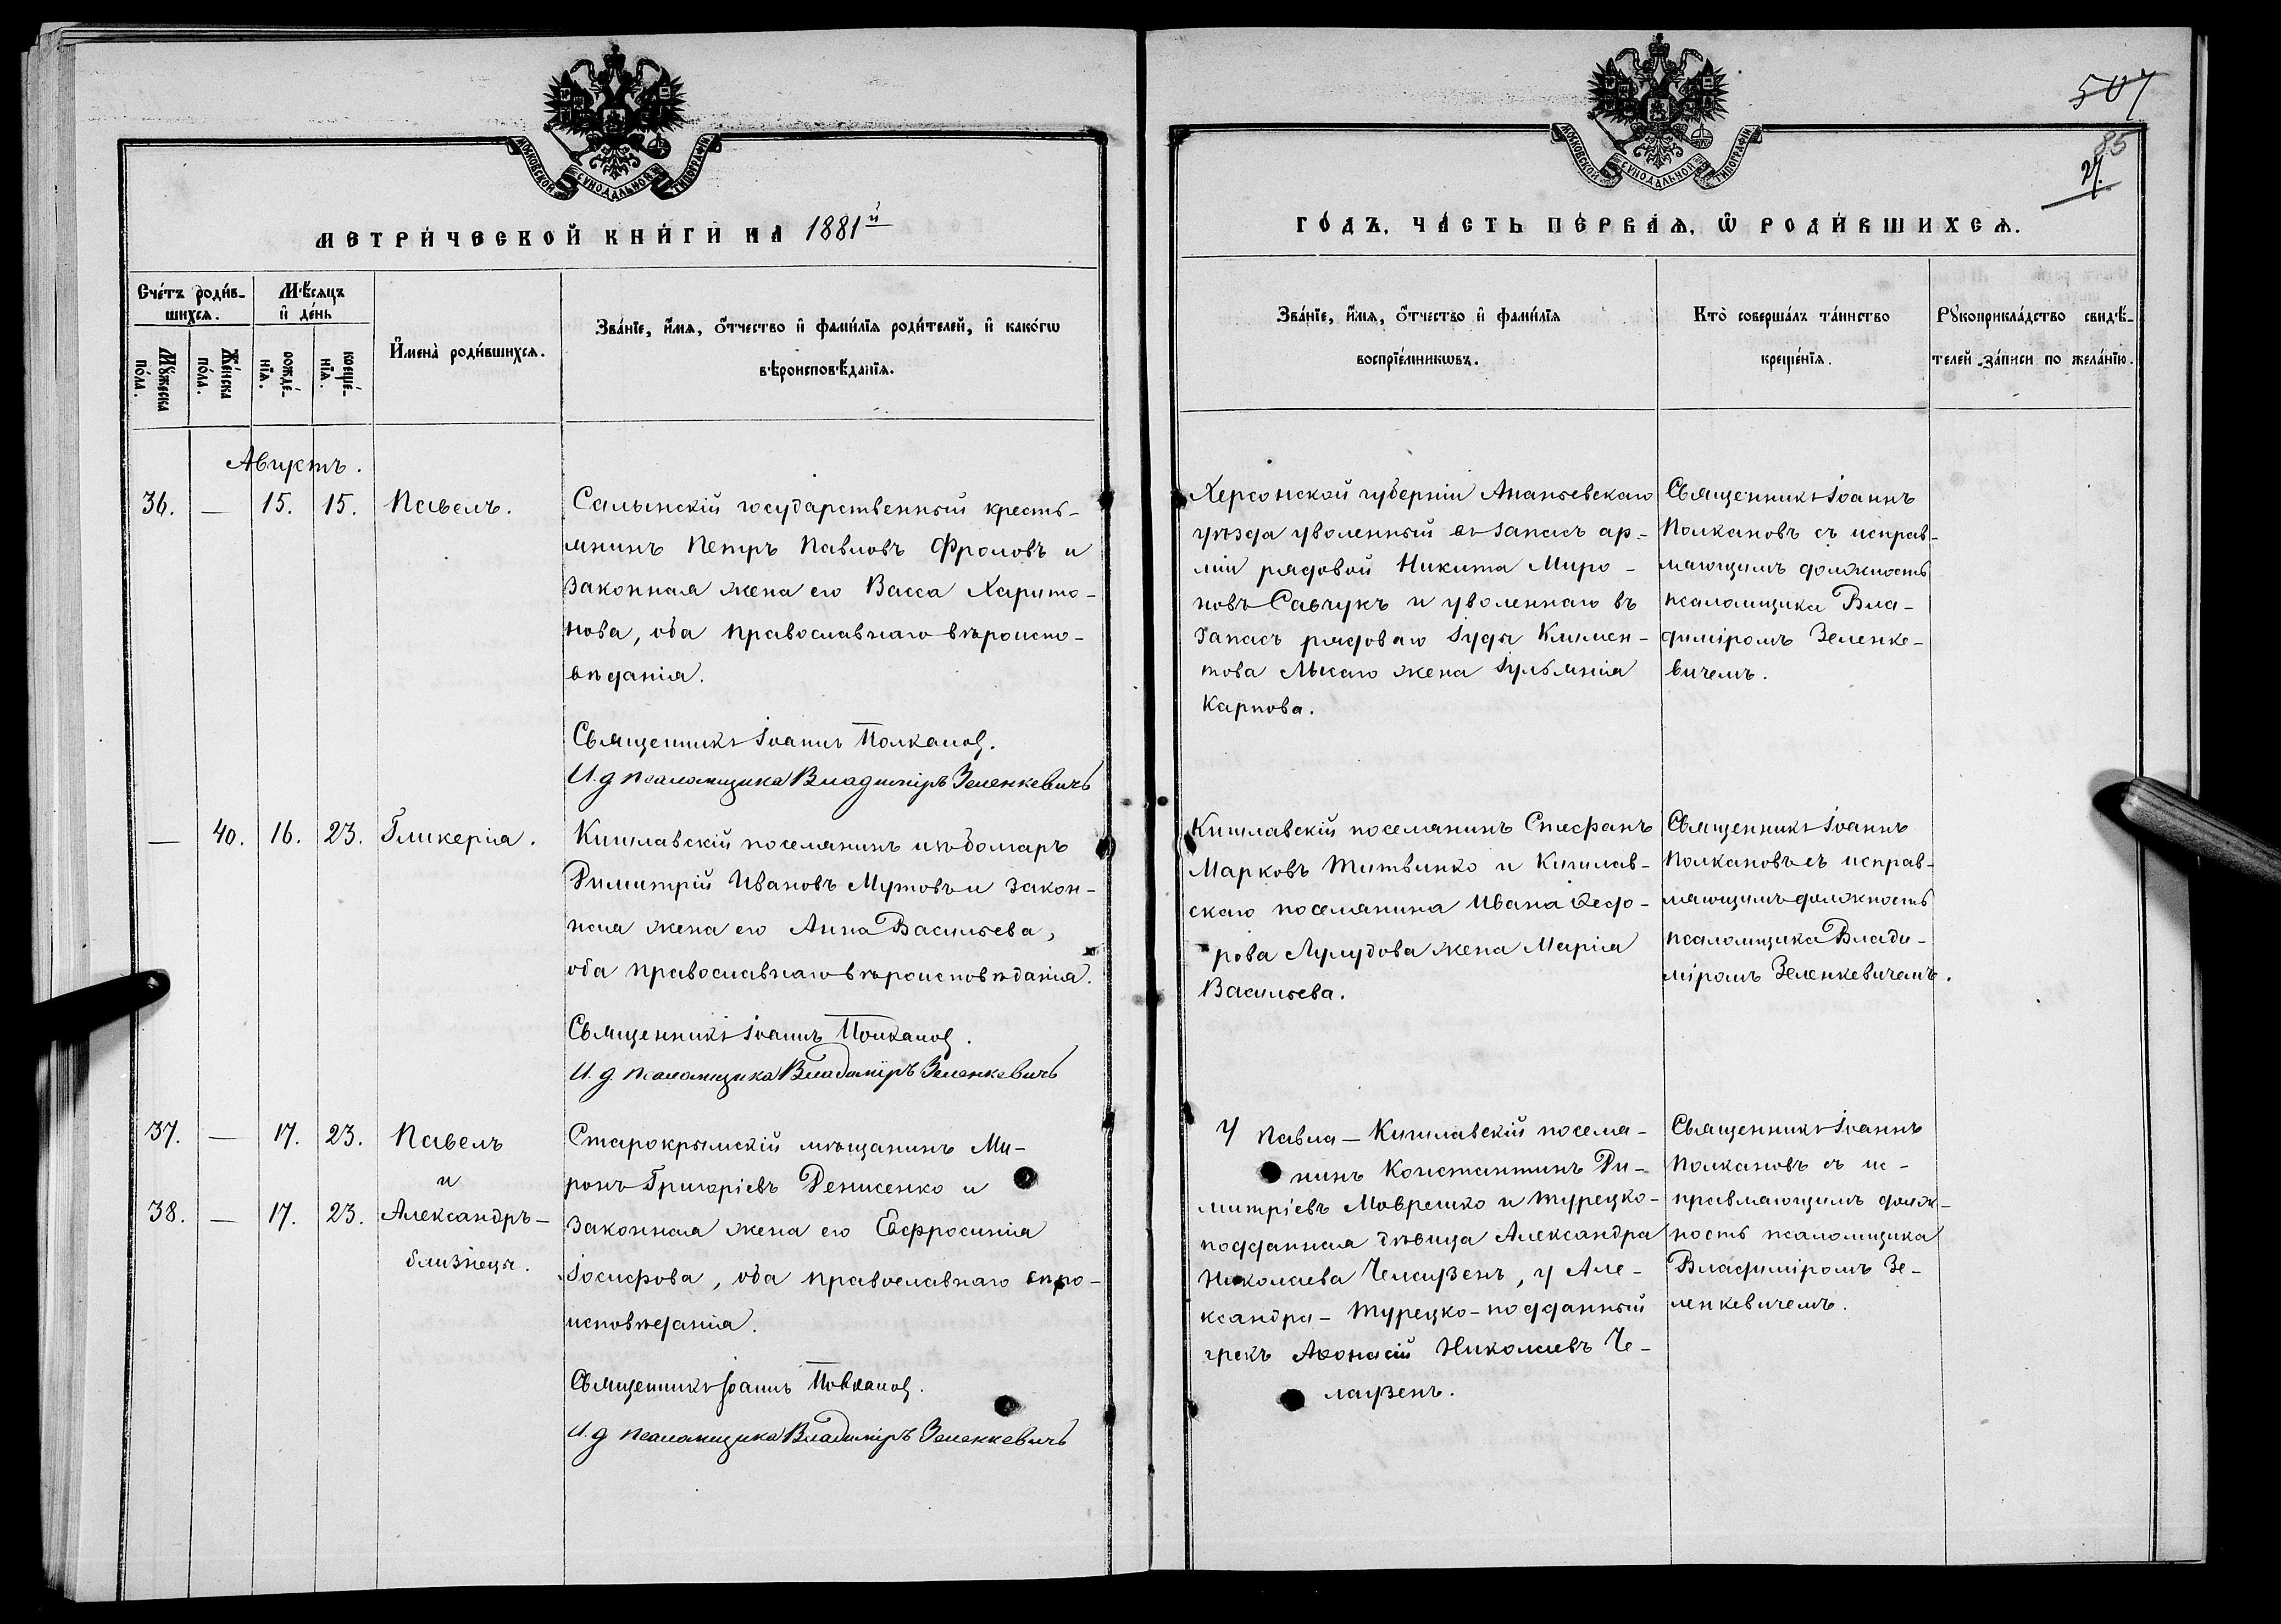 МОСКОВСКОЙ СѴНОДАЛЬНОЙ ТИПОГРАФІИ.
МЕТРИ́ЧЕСКОЙ КНИ́ГИ НА 1881й
Сче́тъ роди́в-
шихсѧ.
Мѣ́сѧцъ
и҆ де́нь
Мꙋ́жеска
по́ла.
Же́нска
по́ла.
рожде́-
нїѧ.
креще́-
нїѧ.
И҆мена̀ роди́вшихсѧ.
Зва́нїе, и҆́мѧ, ѻ҆́тчество и҆ фами́лїѧ роди́телей, и҆ како́гѡ
вѣроисповѣ́данїѧ.
Августъ.
36. — 15. 15. Павелъ.
Салынскій государственный кресть-
янинъ Петръ Павловъ Фроловъ и
законная жена его Васса Харито-
нова, оба православнаго вѣроиспо-
вѣданія.
Священникъ Іоаннъ Полканов.
И. д псаломщика Владиміръ Зеленкевичъ
— 40. 16. 23. Гликерія.
Кишлавскій поселянинъ
Димитрій Ивановъ Мутовъ и закон-
ная жена его Анна Васильева,
оба православнаго вѣроисповѣданія.
Священникъ Іоаннъ Полканов.
И. д. псаломщика Владиміръ Зеленкевичъ
37. — 17. 23. Павелъ
и
38. — 17. 23. Александръ —
близнецы.
Старокрымскій мѣщанинъ Ми-
ронъ Григоріевъ Денисенко и
законная жена его Евфросинія
Іосифова, оба православнаго вѣро-
исповѣданія.
Священникъ Іоаннъ Полканов.
И. д псаломщика Владиміръ Зеленкевичъ
507
85
21.
МОСКОВСКОЙ СѴНОДАЛЬНОЙ ТИПОГРАФІИ.
ГО́ДЪ, ЧА́СТЬ ПЕ́РВАѦ, Ѽ РОДИ́ВШИХСѦ.
Зва́нїе, и҆́мѧ, ѻ҆́тчество и҆ фами́лїѧ
воспрїе́мникѡвъ.
Кто̀ соверша́лъ та́инство
креще́нїѧ.
Рꙋкоприкла́дство свидѣ́-
телей за́писи по жела́нїю.
Херсонской губерніи Ананьевскаго
уѣзда уволенный въ запасъ ар-
міи рядовой Никита Миро-
новъ Савчукъ и уволеннаго въ
запасъ рядоваго Іуды Климен-
това Лысаго жена Іульянія
Карпова.
Священникъ Іоаннъ
Полкановъ съ исправ-
ляющимъ должность
псаломщика Вла-
диміромъ Зеленке-
вичемъ.
Кишлавскій поселянинъ Стефанъ
Марковъ Титвинко и Кишлав-
скаго поселянина Ивана Ѳедо-
рова Лулудова жена Марія
Васильева.
Священникъ Іоаннъ
Полкановъ съ исправ-
ляющимъ должность
псаломщика Влади-
міромъ Зеленкевичемъ.
У Павла — Кишлавскій поселя-
нинъ Константинъ Ди-
митріевъ Мавремко и турецко-
подданная дѣвица Александра
Николаева Челаузенъ, у Але-
ксандра — турецко-подданный
грекъ Аѳонасій Николаевъ Че-
лаузенъ.
Священникъ Іоаннъ
Полкановъ съ ис-
правляющимъ долж-
ность псаломщика
Владиміромъ Зе-
ленкевичемъ.